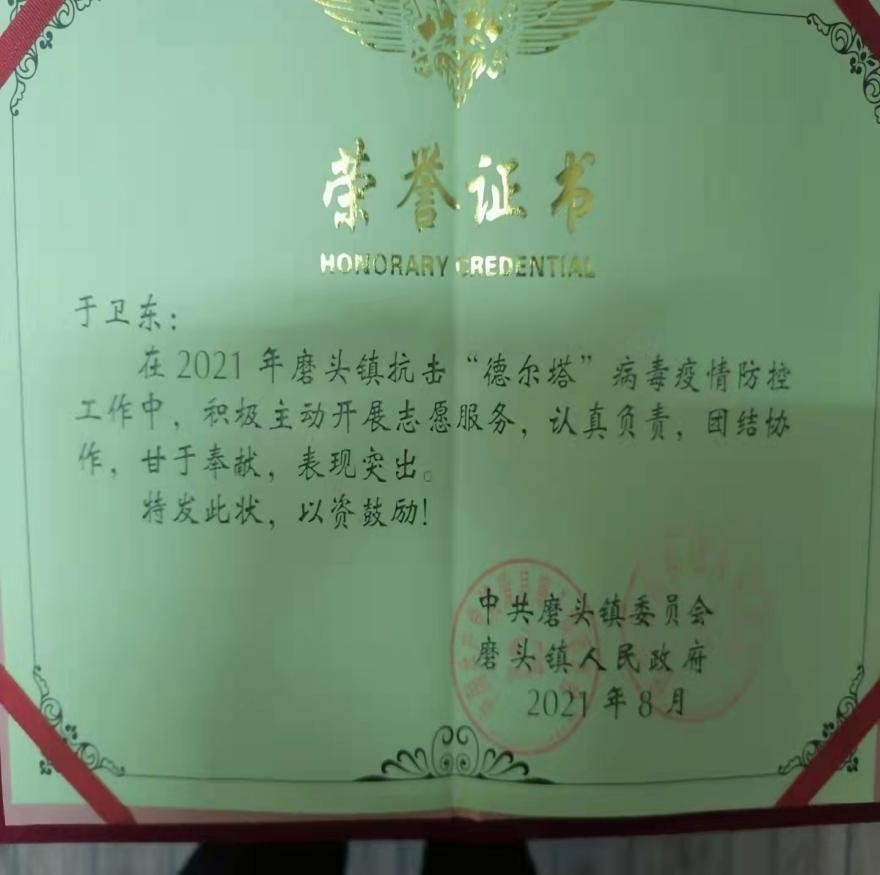 荣誉证书
HONORARY CREDENTIAL
于卫东：
在2021年磨头镇抗击“德尔塔”病毒疫情防控
工作中，积极主动开展志愿服务，认真负责，团结协
作，甘于奉献，表现突出。
特发此状，以资鼓励！
中共磨头镇委员会
磨头镇人民政府
2021年8月